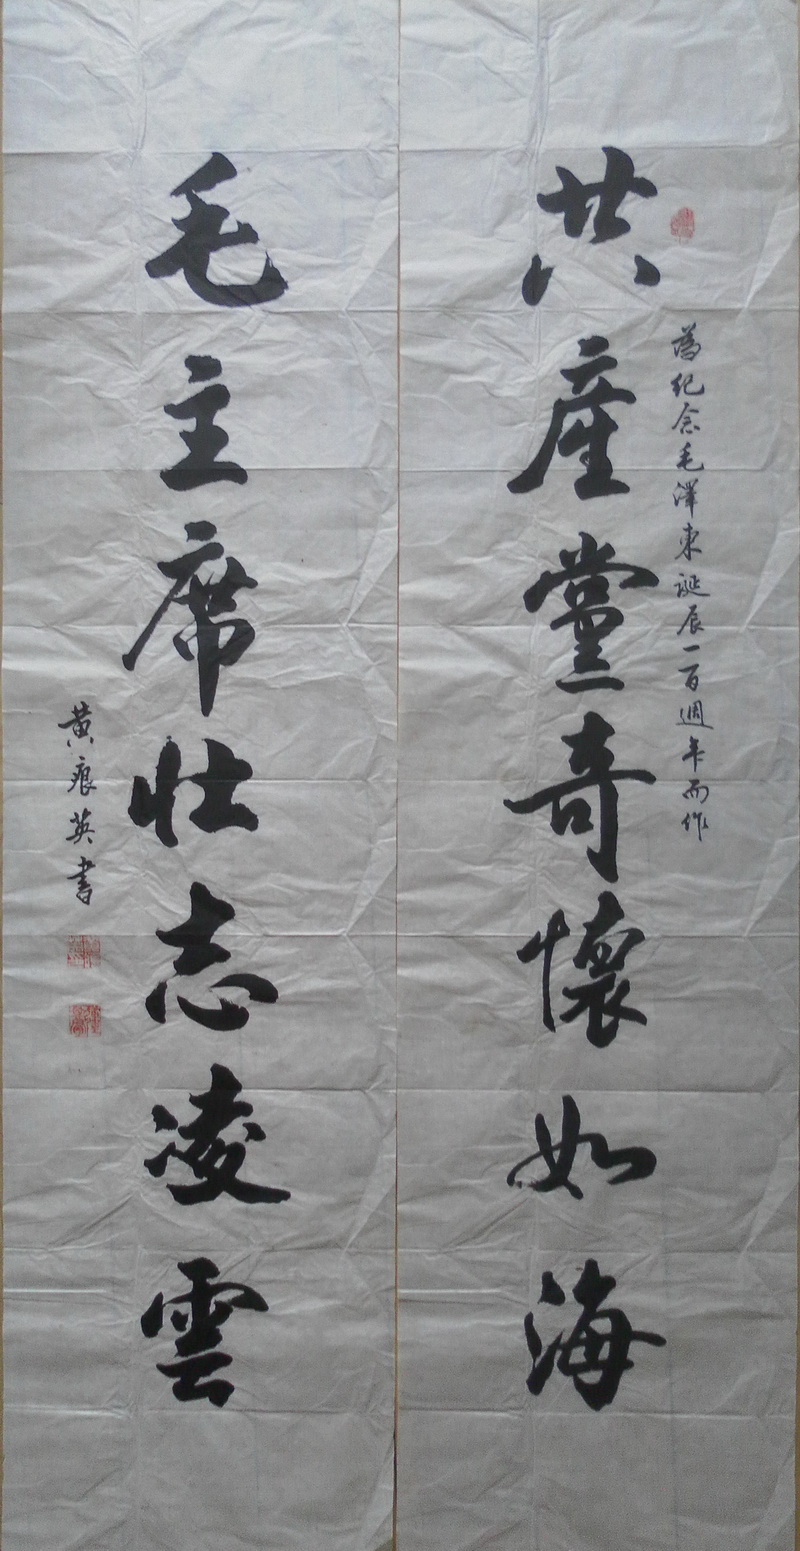 為紀念毛澤東誕辰一百週年而作
共產黨奇懷如海
毛主席壯志凌雲
黄痕英書